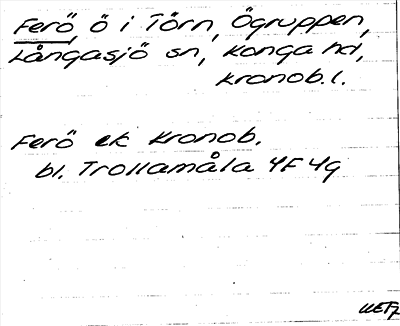 Ferö, ö i Törn, Ögruppen,
Långasjö sn, Konga hd,
Kronob. l.
Ferö ek Kronob.
bl. Trollamåla 4F 4g